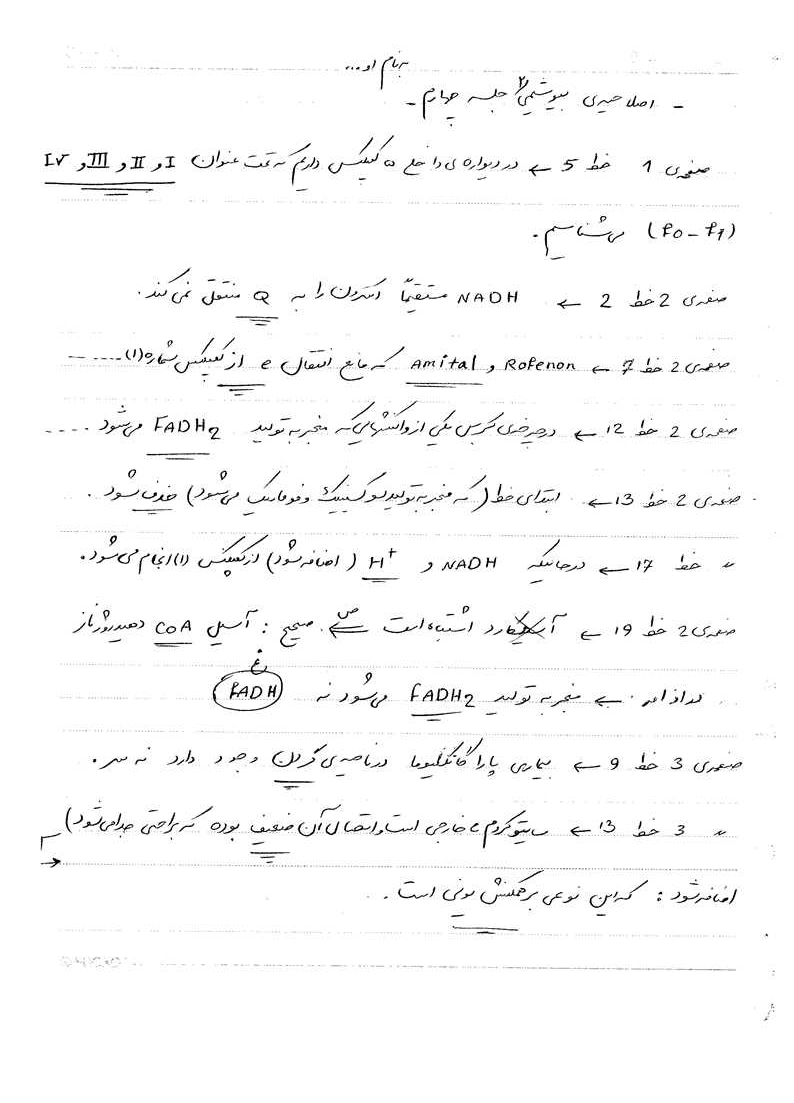 به نام او...
- اصلاحیه‌ی بیوشیمی ۲ جلسه چهارم -
صفحه‌ی 1 خط 5 ← در دیواره‌ی داخلی ۵ کمپلکس داریم که تحت عنوان I و II و III و IV
(F0 - F1) می‌شناسیم.
صفحه‌ی 2 خط 2 ← NADH مستقیماً الکترون را به Q منتقل نمی‌کند.
صفحه‌ی 2 خط 7 ← Rofenon و Amital که مانع انتقال e از کمپلکس شماره (1) .....
صفحه‌ی 2 خط 12 ← در چرخه‌ی کربس یکی از واکنشهایی که منجر به تولید FADH2 می‌شود .....
صفحه‌ی 2 خط 13 ← ابتدای خط (که منجر به تولید سوکسینیک و فوماریک می‌شود) حذف شود.
〃 خط 17 ← درحالیکه NADH و H+ (اضافه شود) از کمپلکس (1) انجام می‌شود.
صفحه‌ی 2 خط 19 ← اشتباه است ص ← صحیح : آسیل CoA دهیدروژناز
← منجر به تولید FADH2 می‌شود نه FADH غ
صفحه‌ی 3 خط 9 ← بیماری پاراگانگلیوما در ناحیه‌ی گردن وجود دارد نه سر.
〃 3 خط 13 ← سیتوکروم c خارجی است و اتصال آن ضعیف بوده که براحتی جدا می‌شود)
اضافه شود : که این نوعی برهمکنش یونی است.